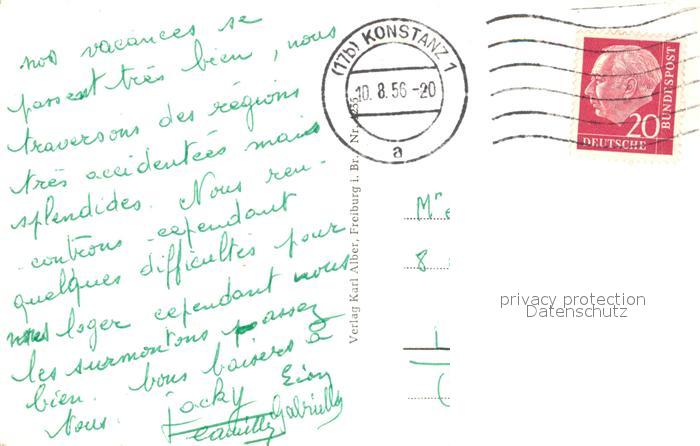 nos vacances se
passent très bien, nous
traversons des régions
très accidentées mais
splendides. Nous ren-
controns cependant
quelques difficultés pour
nous loger cependant nous
les surmontons assez
bien. bons baisers à
Nous. Jacky
Gabrielle
(17b) KONSTANZ 1
10.8.56-20
a
20
DEUTSCHE
BUNDESPOST
Verlag Karl Alber, Freiburg i. Br. Nr.
8
privacy protection
Datenschutz